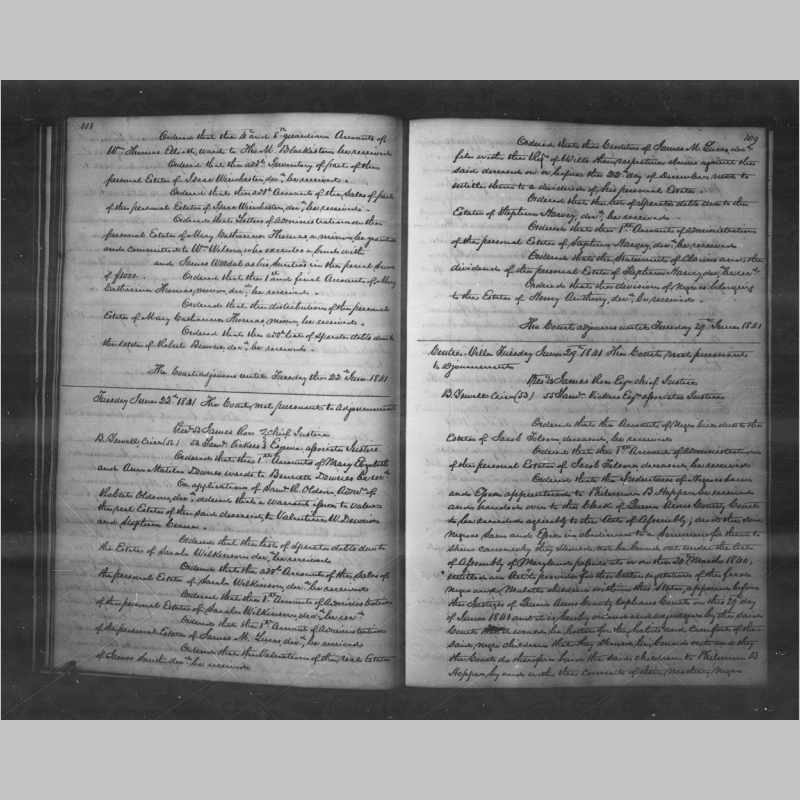 108
Ordered that the 4th and 5th guardian Accounts of
Wm Thomas Elliott ward to Tho M. Blackiston be received
Ordered that the add. Inventory of part of the
personal Estate of Isaac Winchester, decd, be received.
Ordered that the add. Account of the Sales of part
of the personal Estate of Isaac Winchester, decd, be received.
Ordered that Letters of Administration on the
personal Estate of Mary Catharine Thomas, a minor, be granted
and committed to Wm who executes a bond with
and James as his Sureties in the penal Sum
of Ordered that the 1st and final Account of Mary
Catharine Thomas, minor, decd, be received.
Ordered that the distribution of the personal
Estate of Mary Catharine Thomas, minor, be received.
Ordered that the add. list of Sperate debts due to
the Estate of Robert decd, be received.
The Court adjourns until Tuesday the 22nd June 1841
Tuesday June 22nd 1841 The Court met pursuant to adjournment
Prest James Chief Justice
B. Crier (52) 52 Saml Esquire associate Justice
Ordered that the 1st Accounts of Mary Elizabeth
and Ann Matilda wards to Bennett be recd
On application of Saml R. Oldson, Admr of
Robert Oldson, decd, ordered that a warrant issue to value
the real Estate of the said deceased, to Valentine W.
and
Ordered that the list of Sperate debts due to
the Estate of Sarah Wilkinson, decd, be received
Ordered that the add. Account of the Sales of
the personal Estate of Sarah Wilkinson, decd, be received
Ordered that the 1st Account of Administration
of the personal Estate of Sarah Wilkinson, decd, be recd
Ordered that the 1st Account of Administration
of the personal Estate of James M. decd, be received
Ordered that the Valuation of the real Estate
of decd, be received
109
Ordered that the Creditors of James M. decd
file with the Regr of Wills their respective claims against the
said deceased on or before the 22nd day of December next to
entitle them to a dividend of his personal Estate.
Ordered that the list of Sperate debts due to the
Estate of Stephen Harvey, decd, be received
Ordered that the 1st Account of administration
of the personal Estate of Stephen Harvey, decd, be received
Ordered that the Statement of Claims and the
dividend of the personal Estate of Stephen Harvey, decd, be recd
Ordered that the division of Negroes belonging
to the Estate of Henry Anthony, decd, be received.
The Court adjourns until Tuesday 29th June 1841
Centre Ville Tuesday June 29th 1841 The Court met pursuant
to adjournment
Prest James Esqr chief Justice
B. Crier (53) 53 Saml Esqr associate Justice
Ordered that the Account of Negro hire due to the
Estate of Jacob deceased, be received
Ordered that the 1st Account of Administration
of the personal Estate of Jacob deceased, be received
Ordered that the Indentures of Negroes
and apprenticed to Philemon B. Hopper be received
and handed over to the Clerk of Queen Anns County Court
to be recorded agreeably to the Act of Assembly; and the said
negroes and in obedience to a Summons for them to
shew cause why they should not be bound out under the Act
of Assembly of Maryland passed at on the 20th March 1840,
entitled an Act to provide for the better regulation of the free
negro and Mulatto children within this State, appeared before
the Justices of Queen Anns County Orphans Court on this 29th day
of June 1841 and it is hereby ordered and adjudged by the said
Court that it would be better for the habits and comfort of the
said negro children that they should be bound out and they
the Court do therefore bind the said children to Philemon B
Hopper, by and with the consent of their mother, negro